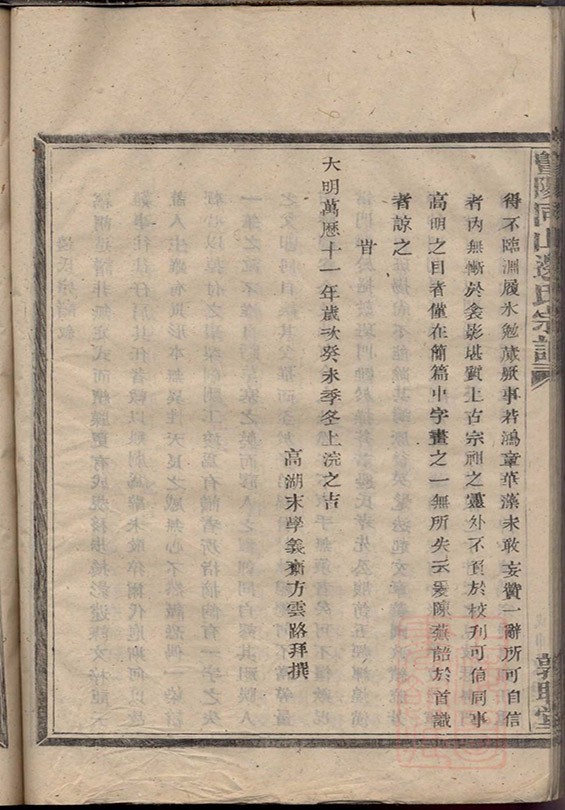 得不臨淵履氷勉蕆厥事若鴻章華藻未敢妄贊一辭所可自信
者內無慚於衾影堪質上古宗祖之靈外不負於校刋可信同事
高明之目者僅在簡篇中字畫之一無所失云爰陳蕪語於首識
者諒之
旹
大明萬歷十一年歲次癸未季冬上浣之吉
高湖末學義齋方雲路拜撰
暨陽同山邊氏宗譜
敦睦堂